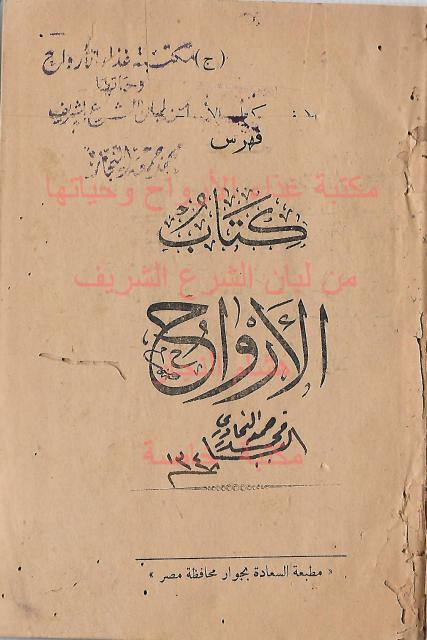 (ج) مكتبة غذاء الأرواح
وحياتها
من لبان الشرع الشريف
فهرس
مكتبة غذاء الأرواح وحياتها
كتاب
من لبان الشرع الشريف
الأرواح
١٣٤٨
مكتبة خاصة
« مطبعة السعادة بجوار محافظة مصر »